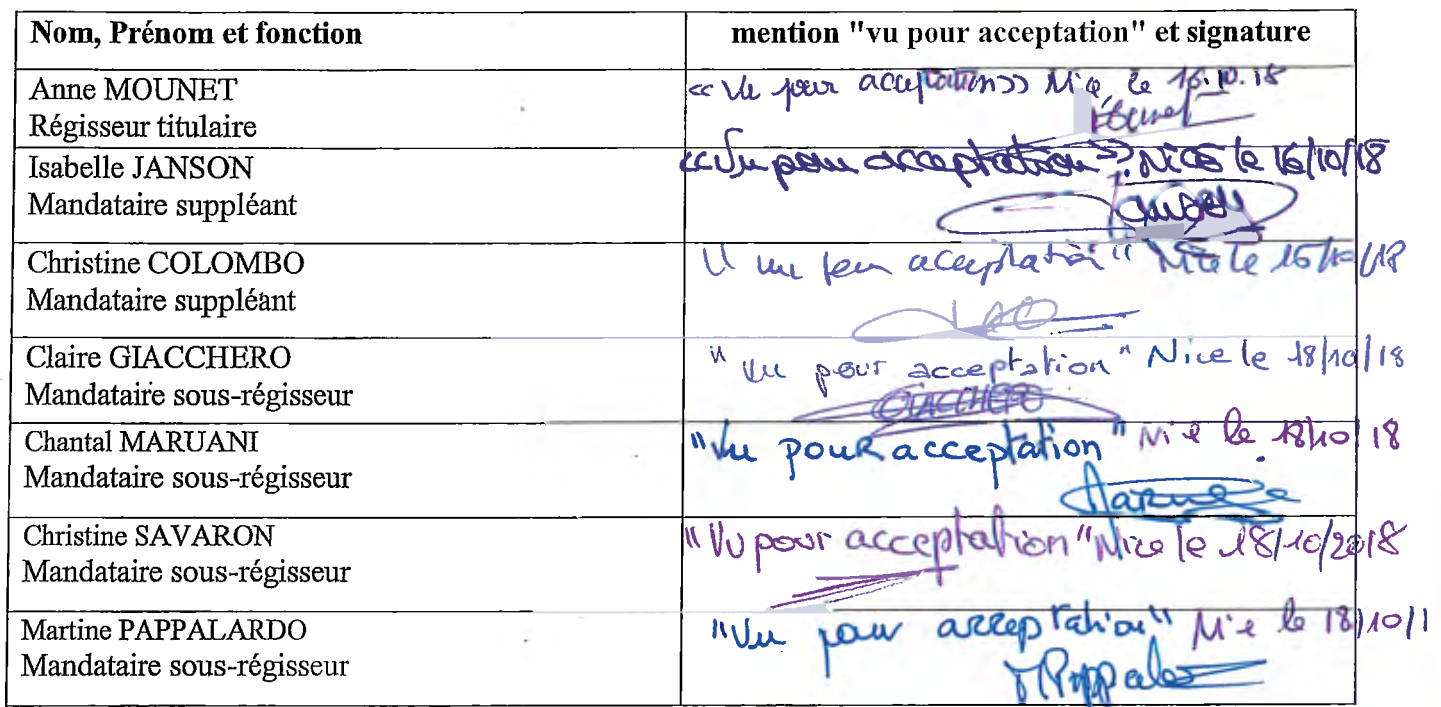 Nom, Prénom et fonction
mention "vu pour acceptation" et signature
Anne MOUNET
Régisseur titulaire
«Vu pour acceptation» Nice, le 16.10.18
Isabelle JANSON
Mandataire suppléant
«Vu pour acceptation». Nice le 16/10/18
Janson
Christine COLOMBO
Mandataire suppléant
"Vu pour acceptation" Nice le /10/18
Claire GIACCHERO
Mandataire sous-régisseur
"Vu pour acceptation" Nice le 18/10/18
GIACCHERO
Chantal MARUANI
Mandataire sous-régisseur
"Vu pour acceptation" Nice le 18/10/18
Christine SAVARON
Mandataire sous-régisseur
"Vu pour acceptation" Nice le 18/10/2018
Martine PAPPALARDO
Mandataire sous-régisseur
"Vu pour acceptation" Nice le 18/10/1